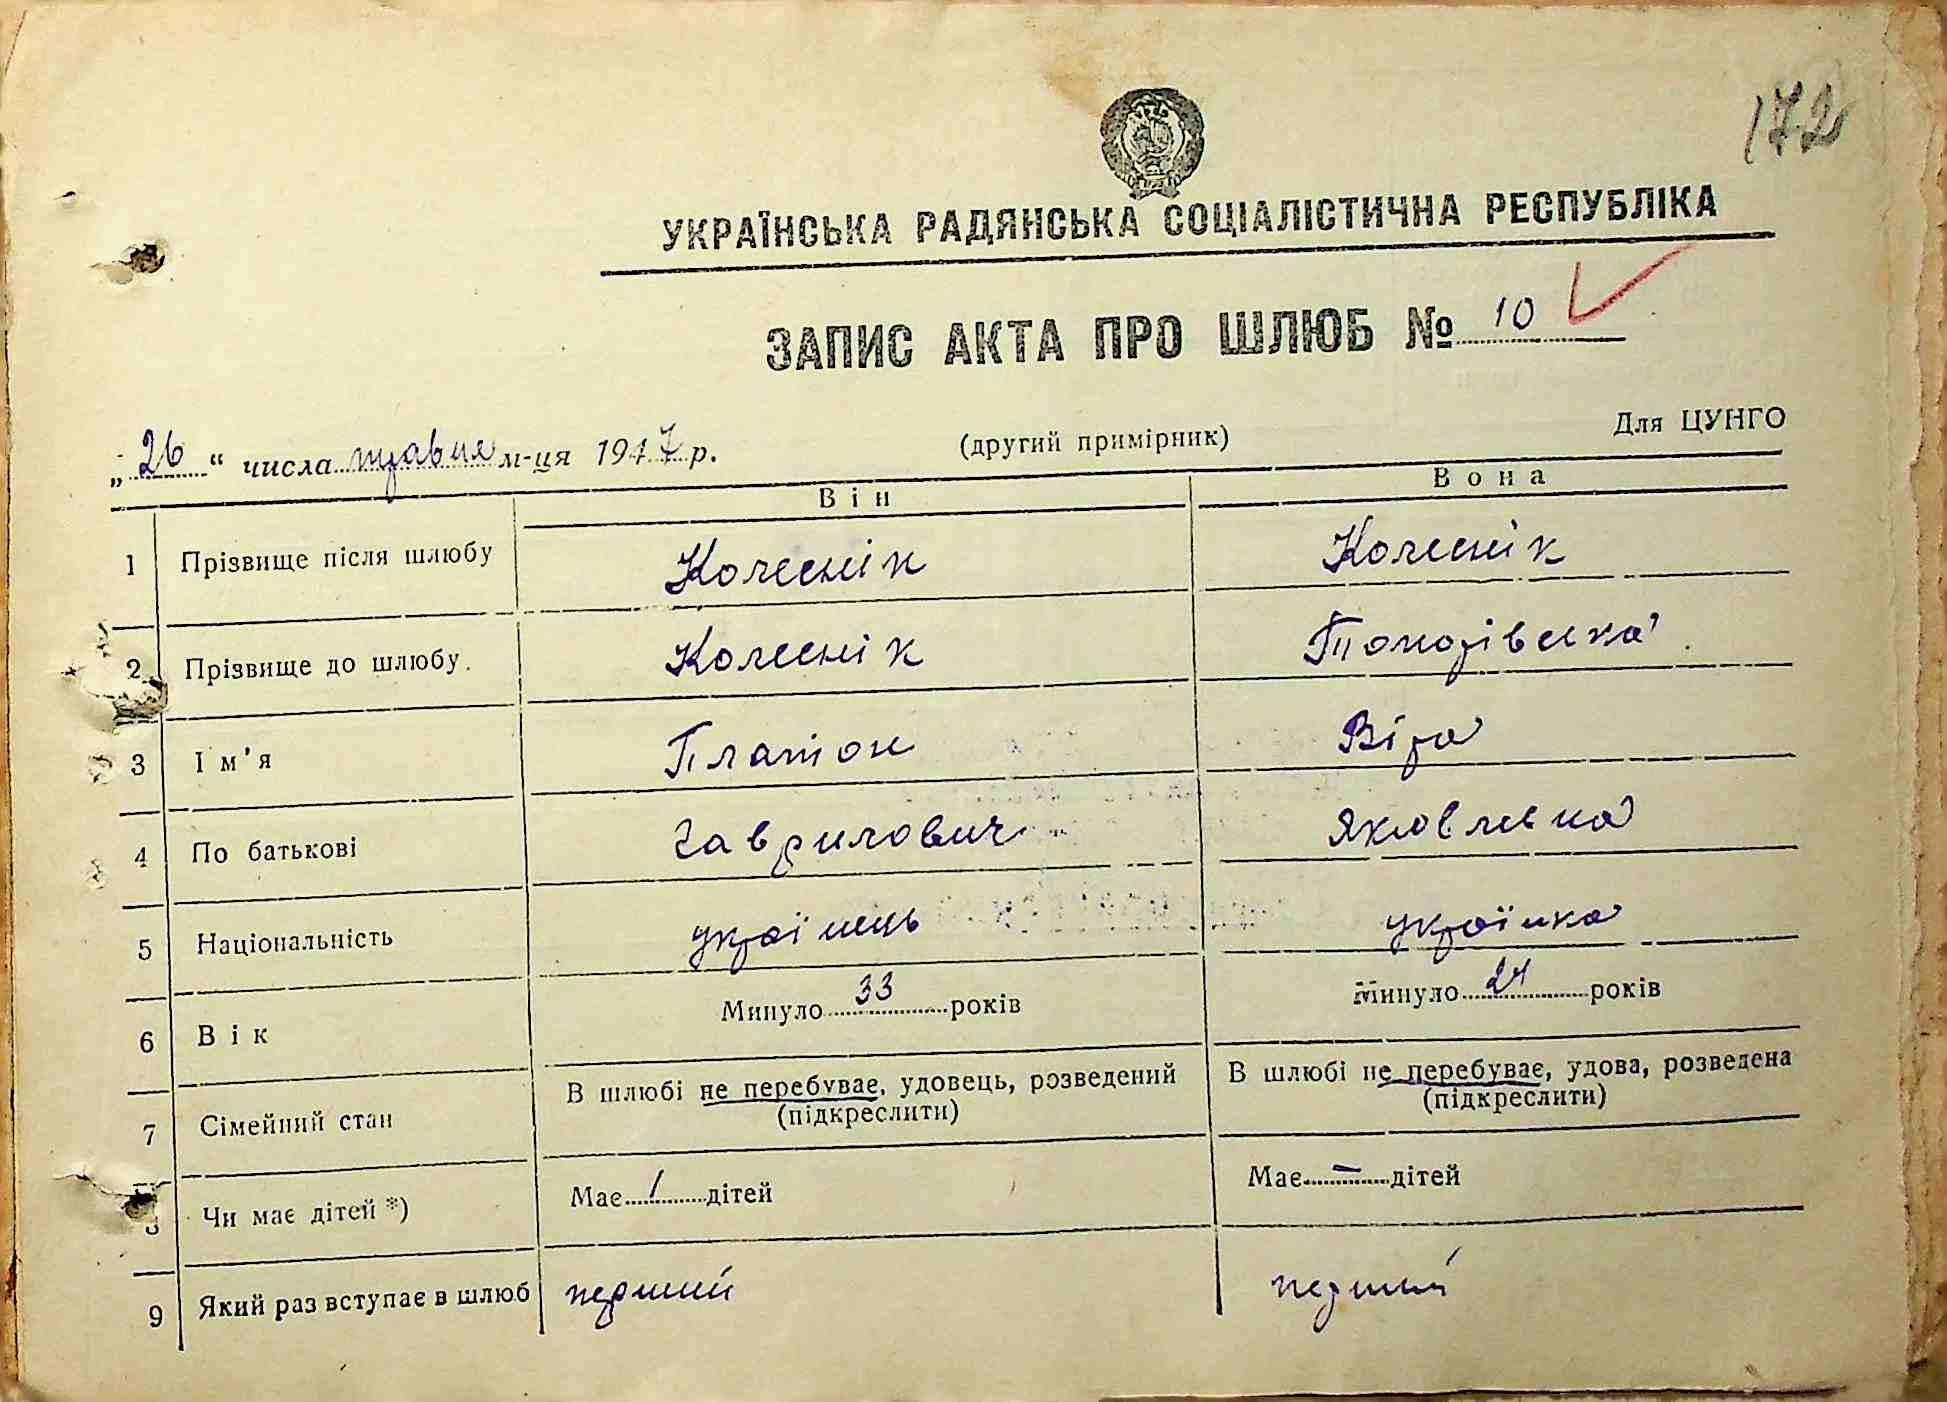 172
УКРАЇНСЬКА РАДЯНСЬКА СОЦІАЛІСТИЧНА РЕСПУБЛІКА
ЗАПИС АКТА ПРО ШЛЮБ № 10
„26“ числа травня м-ця 1947 р. (другий примірник) Для ЦУНГО
Він Вона
1 Прізвище після шлюбу Колеснік Колеснік
2 Прізвище до шлюбу Колеснік
3 Ім'я Платон Віра
4 По батькові Гаврилович Яковлевна
5 Національність українець українка
6 Вік Минуло 33 років Минуло 24 років
7 Сімейний стан В шлюбі не перебуває, удовець, розведений (підкреслити) В шлюбі не перебуває, удова, розведена (підкреслити)
8 Чи має дітей *) Має 1 дітей Має — дітей
9 Який раз вступає в шлюб перший перший